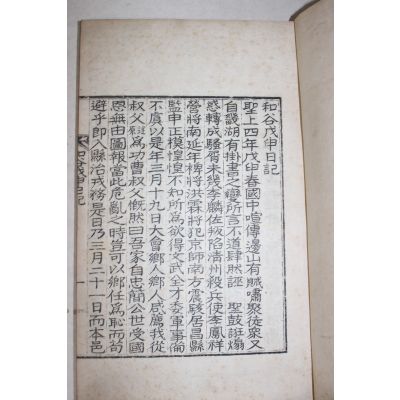 和谷戊申日記
聖上四年戊申春國中喧傳邊山有賊嘯聚徒衆又
自畿湖有掛書之變所言不道肆然誑 聖鼓誑煽
惑轉成騷屑未幾李麟佐叛陷淸州殺兵使李鳳祥
營將南延年裨將洪霖將犯京師南方震駭居昌縣
監申正模惶惶不知所爲欲得文武全才委軍事倫
不虞以是年三月十九日大會鄕人鄕人咸薦我從
叔父爲功曹叔父慨然曰吾家自忠簡公世受國
恩無由圖報當此危亂之時豈可以鄕任爲恥而苟
避乎卽入縣治戎務是日乃三月二十一日而本邑
和谷戊申日記
一